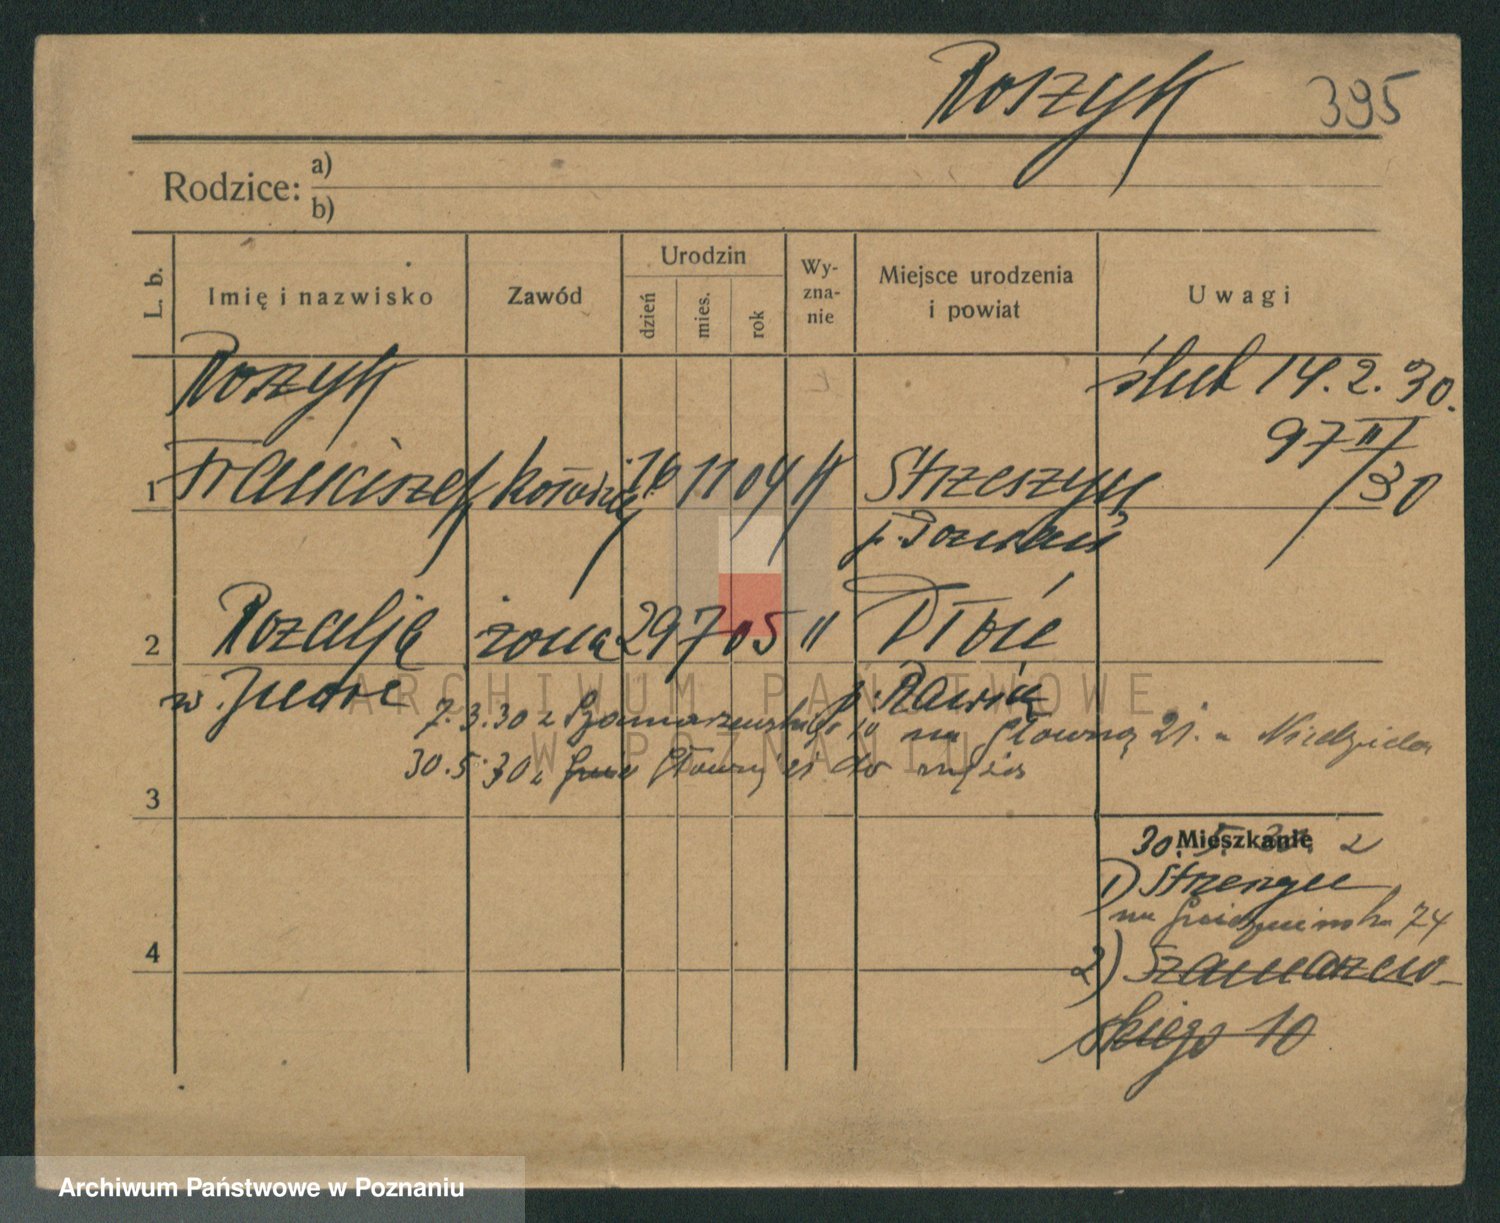 Roszyk 395
Rodzice: a)
b)
L. b. Imię i nazwisko Zawód Urodzin dzień mies. rok Wy-zna-nie Miejsce urodzenia i powiat Uwagi
Roszyk ślub 14.2.30.
97 II/30
1 Franciszek 16 11 04 k Strzeszyn
p. Poznań
2 Rozalja żona 29 7 05 " Dłoń
p. Rawicz
ARCHIWUM PAŃSTWOWE
7.3.30 z Szamarzewskiego 10 na Główną 21.
W POZNANIU
30.5.30 z Główny 21 do męża
3
Mieszkanie
30.5.30. z
1) Strzeszyn
na 74
4
2) Szamarzew-
skiego 10
Archiwum Państwowe w Poznaniu